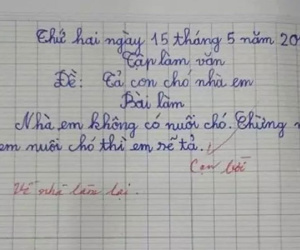 Thứ hai ngày 15 tháng 5 năm 20
Tập làm văn
Đề: Tả con chó nhà em
Bài làm
Nhà em không có nuôi chó. Chừng n
em nuôi chó thì em sẽ tả.
Cạn lời
Về nhà làm lại.